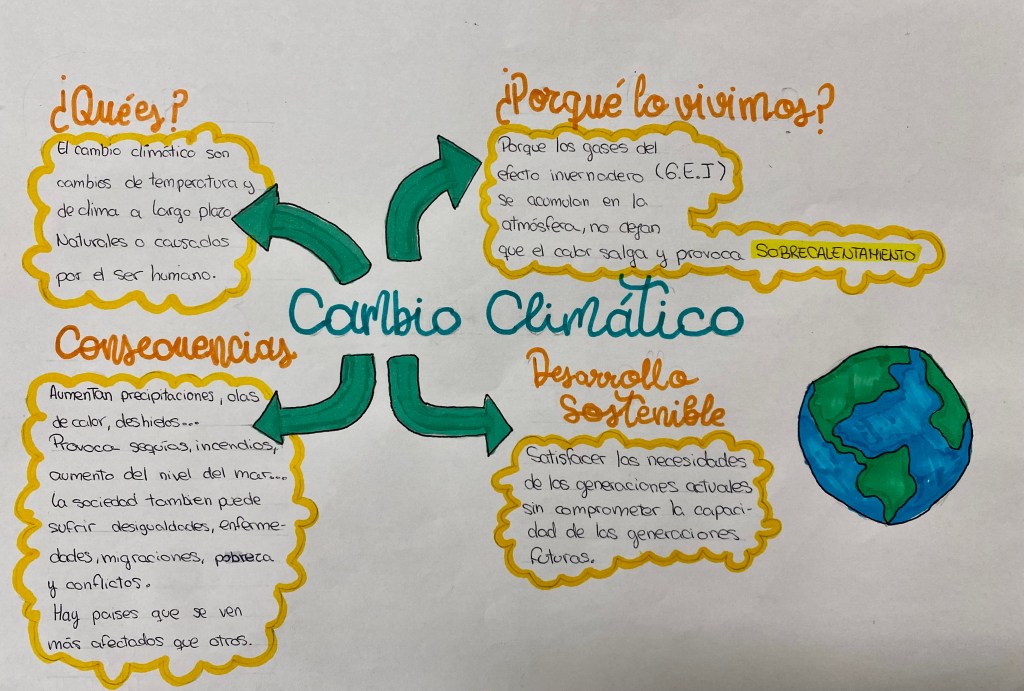 ¿Qué es?
El cambio climático son
cambios de temperatura y
de clima a largo plazo
Naturales o causados
por el ser humano.
¿Porqué lo vivimos?
Porque los gases del
efecto invernadero (G.E.I)
se acumulan en la
atmósfera, no dejan
que el calor salga y provoca SOBRECALENTAMIENTO
Cambio Climático
Consecuencias
Aumentan precipitaciones, olas
de calor, deshielos...
Provoca sequías, incendios,
aumento del nivel del mar...
la sociedad tambien puede
sufrir desigualdades, enferme-
dades, migraciones, pobreza
y conflictos.
Hay paises que se ven
más afectados que otros.
Desarrollo
Sostenible
Satisfacer las necesidades
de las generaciones actuales
sin comprometer la capaci-
dad de las generaciones
futuras.